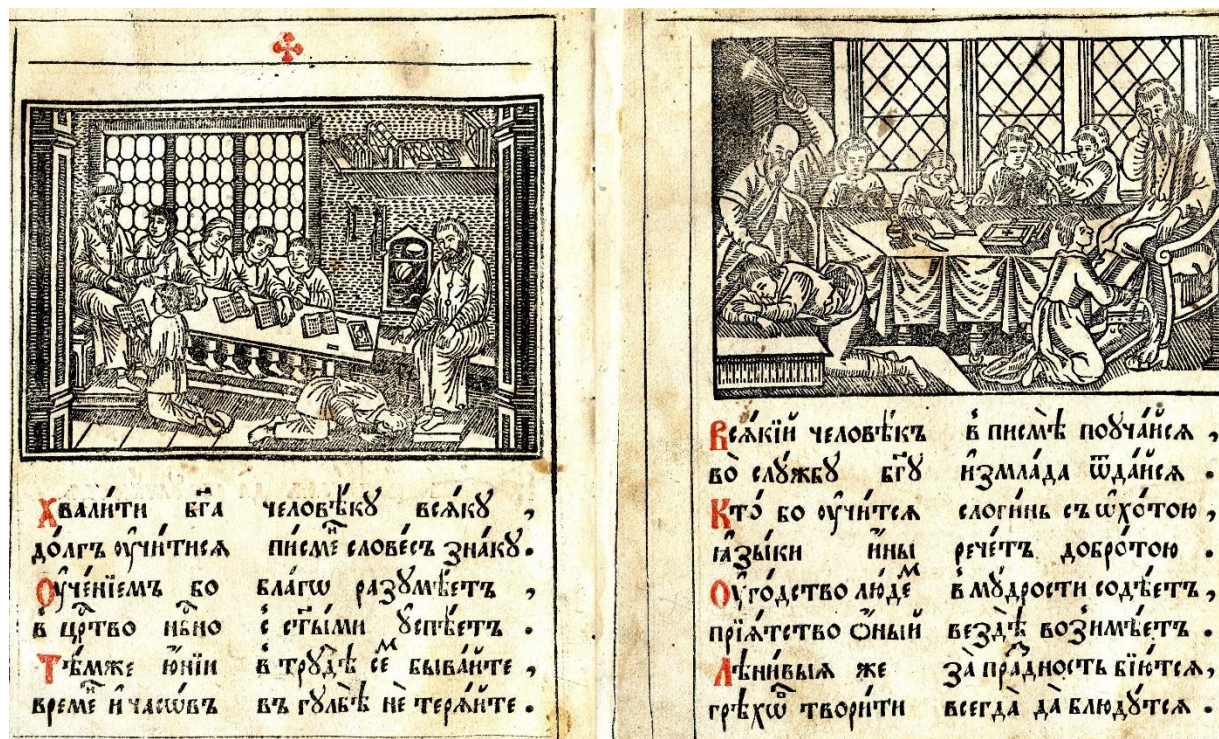 Хвали́ти бг҃а человѣ́кꙋ всѧ́кꙋ ,
до́лгъ оу҆чи́тисѧ письмеⷩ҇ слове́съ зна́кꙋ .
Оу҆че́нїемъ бо бла́гѡ разꙋмѣ́етъ ,
в црⷭ҇тво нбⷭ҇но с ст҃ы́ми ᲂу҆спѣ́етъ .
Тѣ́мже ю҆́нїи в трꙋдѣ̀ сеⷨ быва́йте ,
времеⷩ҇ и҆ часѡ́въ въ гꙋлбѣ̀ не терѧ́йте .
Всѧ́кїй человѣ́къ в писмѣ̀ поꙋча́йсѧ ,
во слꙋ́жбꙋ бг҃ꙋ и҆змла́да ѿда́йсѧ .
Кто́ бо оу҆чи́тсѧ слоги́нь съ ѡ҆хо́тою ,
ꙗ҆зы́ки и҆́ны рече́тъ добро́тою .
Оу҆го́дство лю́деⷨ в мꙋ́дрости содѣ́етъ ,
прїѧ́тство ѻ҆́ный вездѣ̀ возимѣ́етъ .
Лѣни́выѧ же за̀ праⷥность бїю́тсѧ ,
грѣхѡⷡ҇ твори́ти всегда̀ да̀ блюдꙋ́тсѧ .